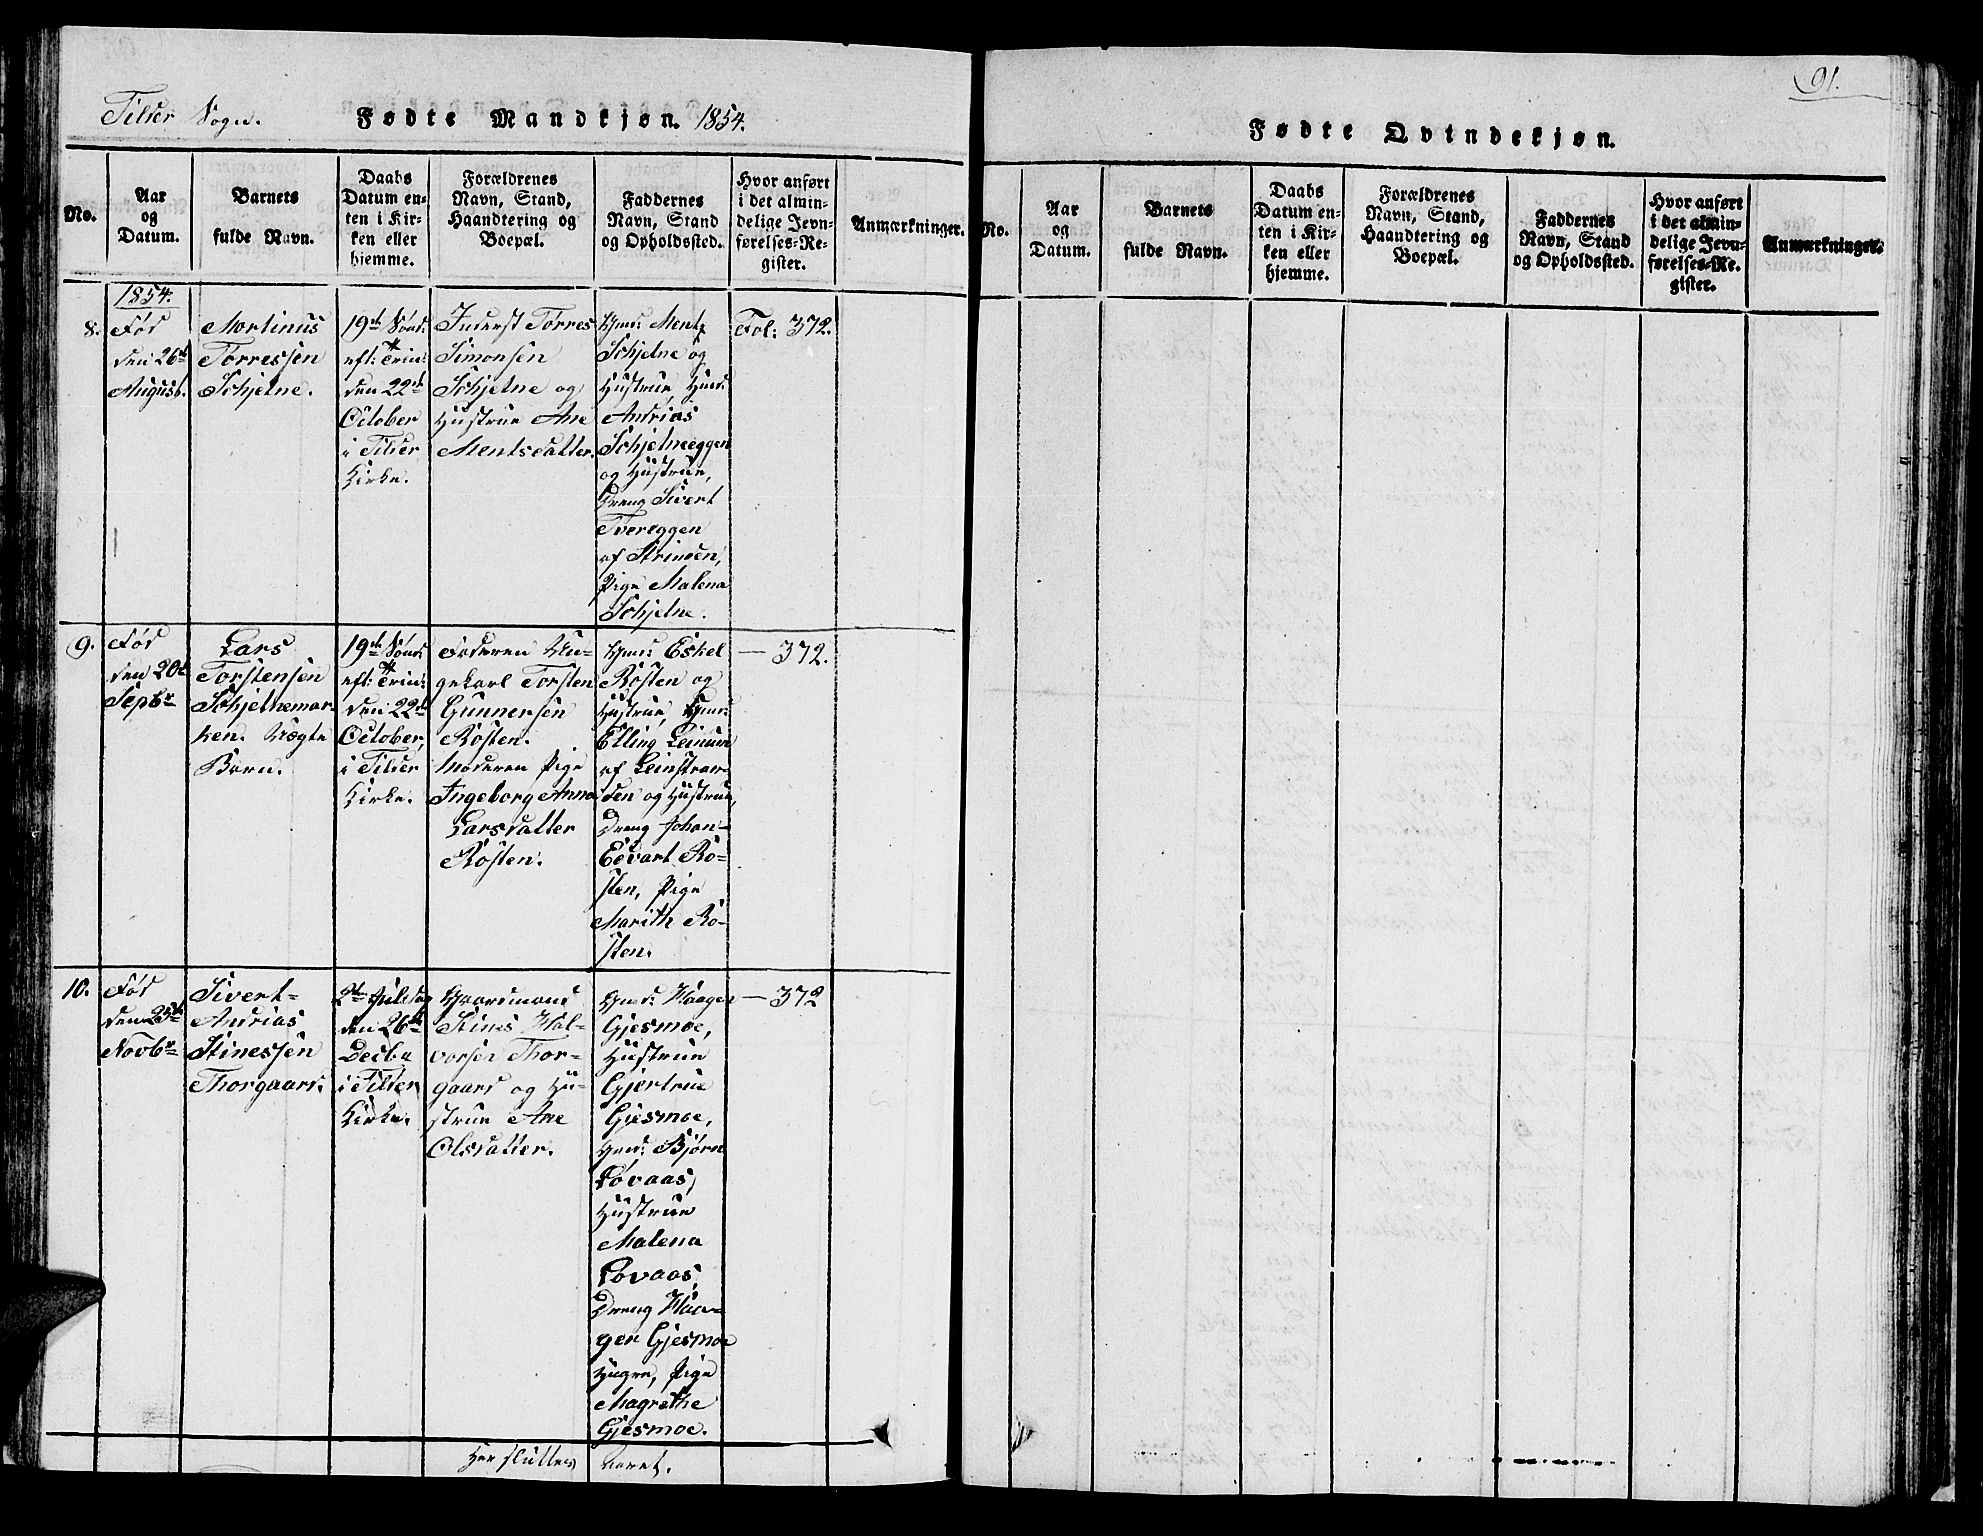 Tilder Sogn.
Fødte Mandkjøn. 1854.
No.
Aar
og
Datum.
Barnets
fulde Navn.
Daabs
Datum en-
ten i Kir-
ken eller
hjemme.
Forældrenes
Navn, Stand,
Haandtering og
Boepæl.
Faddernes
Navn, Stand
og Opholdssted.
Hvor anført
i det almin-
delige Jevn-
førelses-Re-
gister.
Anmærkninger.
1854.
8.
Fød
den 26de
August.
Mortinus
Torressen
Schjelne.
19de Sönd:
eft: Trin:
den 22de
October
i Tilder
Kirke.
Inderst Torres
Simonsen
Schjelne og
Hustrue Ane
Mentsdatter.
Gmd: Mentz
Schjelne og
Hustrue, Gmd:
Andrias
Schjelneeggen
og Hustrue,
Dreng Sivert
Tvereggen
af Strinden,
Pige Malena
Schjelne.
Fol: 372.
9.
Fød
den 20de
Septbr
Lars
Torstensen
Schjelnemar-
ken. Uægte
Barn.
19de Sönd:
eft: Trin:
den 22de
October,
i Tilder
Kirke.
Faderen Un-
gekarl Torsten
Gunnersen
Rosten.
Moderen Pige
Ingeborg Anna
Larsdatter
Rosten.
Gmd: Eskel
Rosten og
Hustrue, Gmd:
Elling Leinum
af Leinstran-
den og Hustrue,
Dreng Johan-
Edvart Ro-
sten, Pige
Marith Ro-
sten.
— 372.
10.
Fød
den 25de
Novbr
Sivert-
Andrias
Stinessen
Thorgaard.
2de Juledag
den 26de
Decbr
i Tilder
Kirke.
Gaardmand
Stines Hal-
vorsen Thor-
gaard og Hu-
strue Ane
Olsdatter.
Gmd: Haagen
Gjesmoe,
Hustrue
Gjertrue
Gjesmoe,
Gmd: Bjørn
Lovaas,
Hustrue
Malena
Lovaas,
Dreng Haa-
gen Gjesmoe
Yngre, Pige
Magrethe
Gjesmoe.
— 372
Her slutter Aaret.
91.
Fødte Qvindekjøn.
No.
Aar
og
Datum.
Barnets
fulde Navn.
Daabs
Datum en-
ten i Kir-
ken eller
hjemme.
Forældrenes
Navn, Stand,
Haandtering og
Boepæl.
Faddernes
Navn, Stand
og Opholdssted.
Hvor anført
i det almin-
delige Jevn-
førelses-Re-
gister.
Anmærkninger.